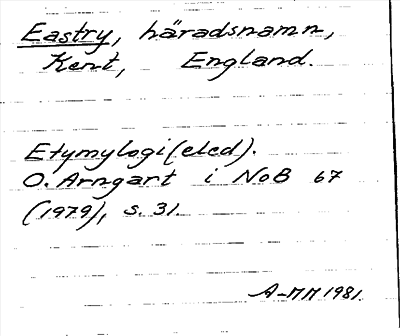 Eastry, häradsnamn,
Kent, England.
Etymylogi (eled).
O. Arngart i NoB 67
(1979), s. 31.
A-MM 1981.